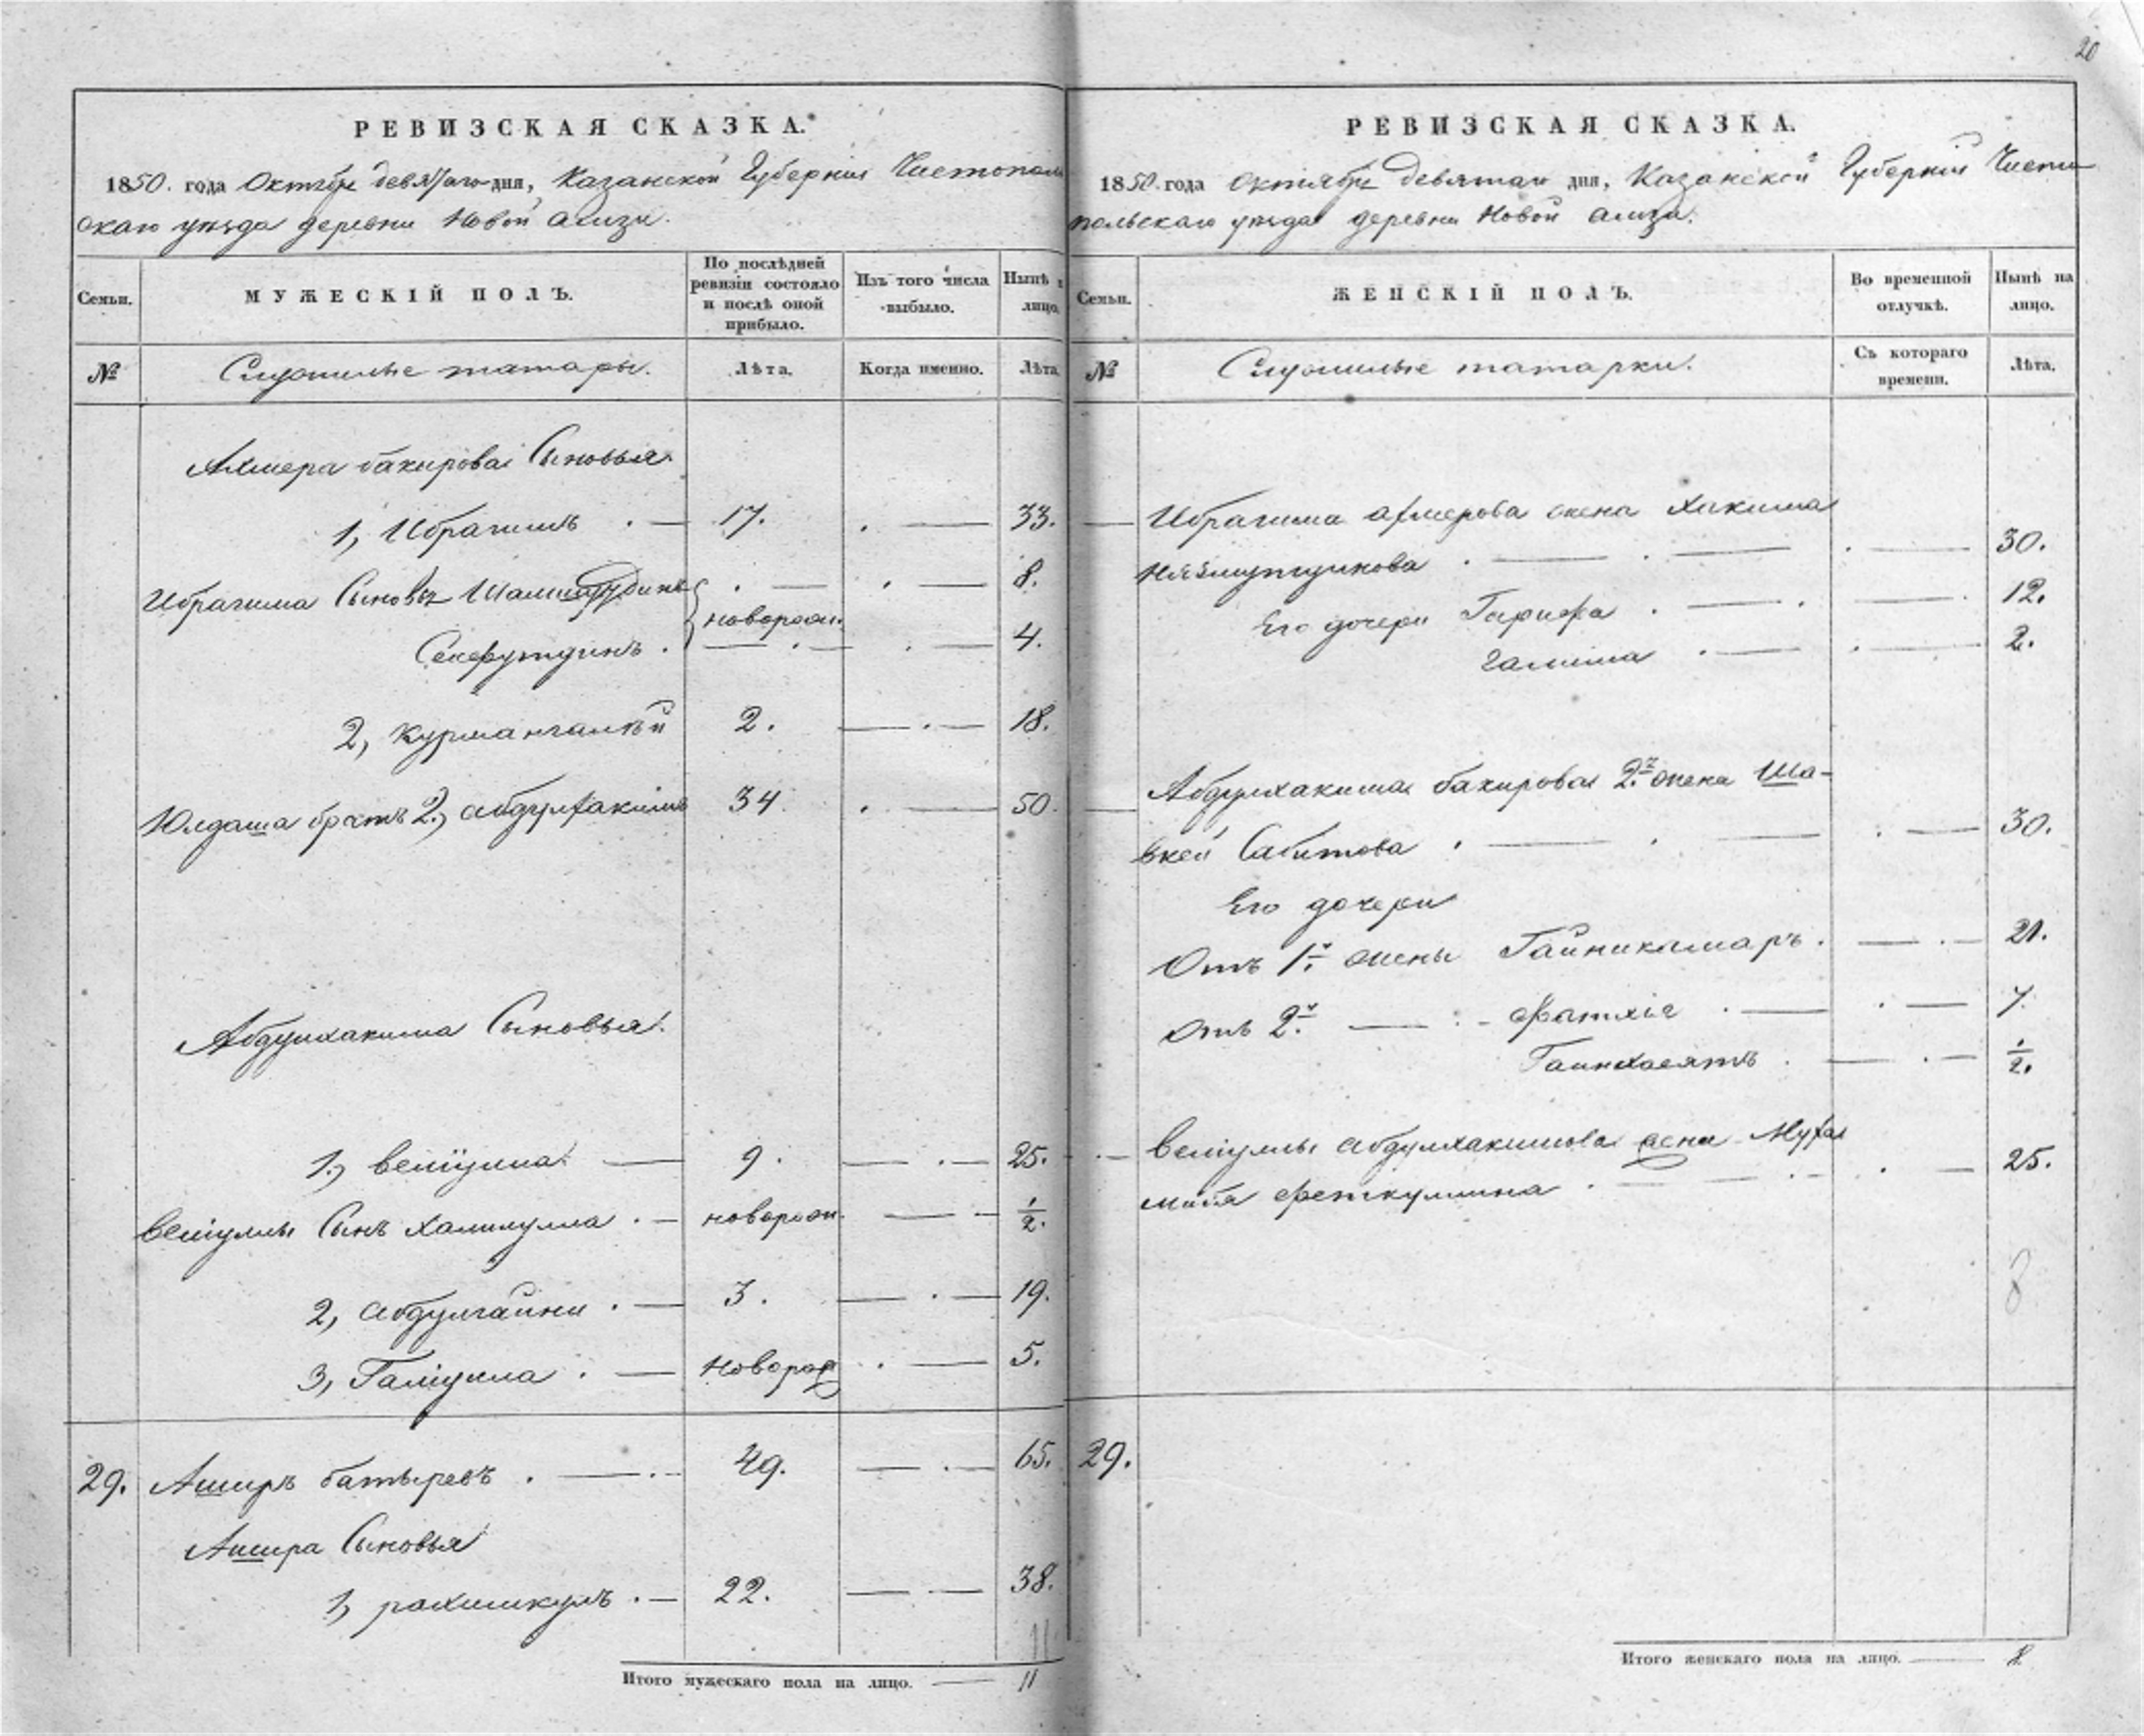 20
РЕВИЗСКАЯ СКАЗКА.
1850. года Октября девятаго дня, Казанской Губерніи Чистополь
скаго уезда деревни Новой Ализи.
Семьи.
МУЖЕСКІЙ ПОЛЪ.
По послѣдней ревизіи состояло и послѣ оной прибыло.
Изъ того числа выбыло.
Нынѣ лицо.
№
Служилые татары.
Лѣта.
Когда именно.
Лѣта.
Ахмера бакирова Сыновья
1, Ибрагимъ . — 17. . — 33.
Ибрагима Сыновья . — . — 8.
новорож.
Сейфутдинъ . — . — . — 4.
2, Курмангалѣй 2. — . — 18.
Юлдаша братъ 2, абдулхакимъ 34 . — 50.
Абдулхакима Сыновья.
1, велiулла — 9. — . — 25.
велiуллы Сынъ халиулла . — новорож. — — 1/2.
2, абдулгайни . — 3. — . — 19.
3, Галiулла . — новорож . — 5.
29. Аширъ батыревъ . — . - 49. — . — 65.
Ашира Сыновья
1, рахимкулъ . — 22. — — 38.
11
Итого мужескаго пола на лицо. — 11
РЕВИЗСКАЯ СКАЗКА.
1850 года октября девятаго дня, Казанской Губерніи Чисто
польскаго уезда деревни Новой ализи.
Семьи.
ЖЕНСКІЙ ПОЛЪ.
Во временной отлучкѣ.
Нынѣ на лицо.
№
Служилые татарки.
Съ котораго времени.
Лѣта.
— Ибрагима ахмерова жена Хакима
. — . — . — 30.
Его дочери Гарифа . — . — . 12.
Галима . — . — 2.
— Абдулхакима бакирова 2я жена Ша-
вкей Сабитова . — . — . — 30.
Его дочери
Отъ 1й жены Гайникамаръ . — . — 21.
Отъ 2й — : - Фатхiя . — . — 7.
Гаинхаятъ . — . — 1/2.
. — велiуллы абдулхакимова жена
феткуллина . — — . - . — 25.
8
29.
Итого женскаго пола на лицо. — 8.